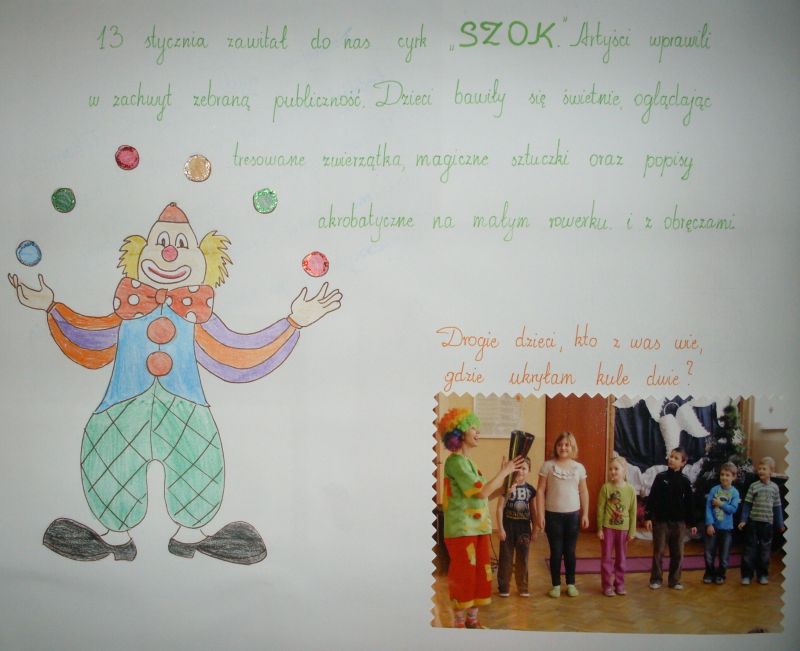 13 stycznia zawitał do nas cyrk „SZOK." Artyści wprawili
w zachwyt zebraną publiczność. Dzieci bawiły się świetnie, oglądając
tresowane zwierzątka, magiczne sztuczki oraz popisy
akrobatyczne na małym rowerku. i z obręczami.
Drogie dzieci, kto z was wie,
gdzie ukryłam kule dwie?